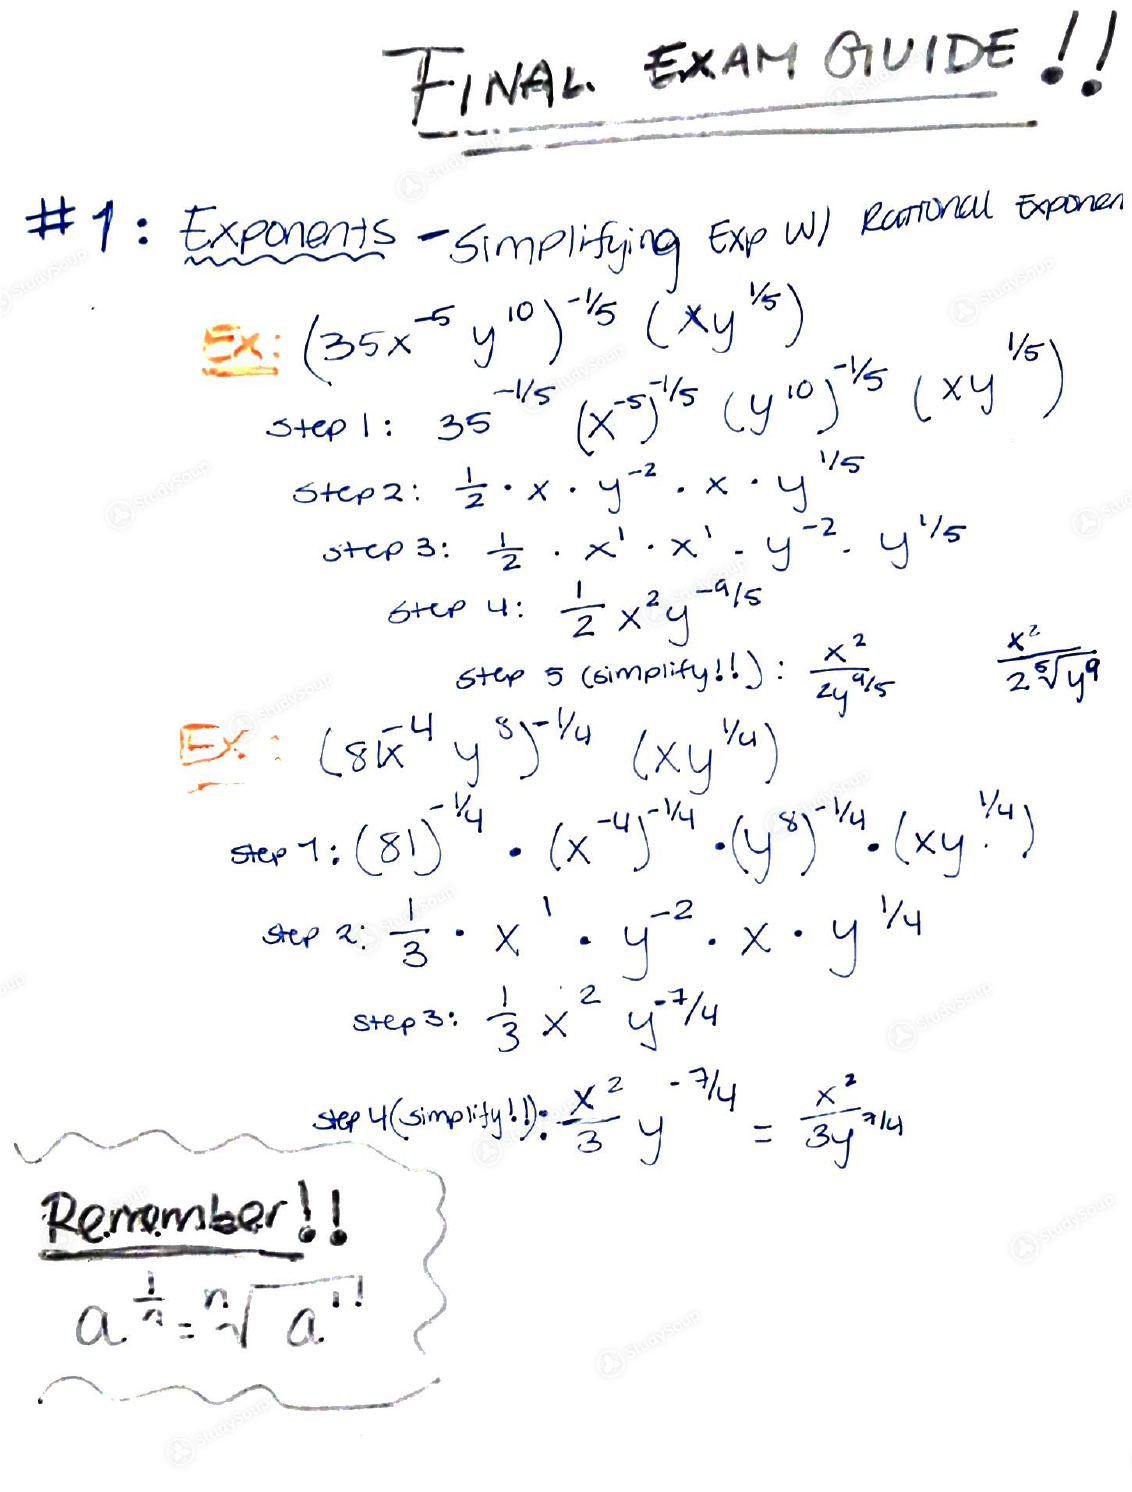 FINAL EXAM GUIDE!!
#1: Exponents - Simplifying Exp W/ Rational Exponen
Ex: (35x^-5 y^10)^-1/5 (xy^1/5)
Step 1: 35^-1/5 (x^-5)^-1/5 (y^10)^-1/5 (xy^1/5)
Step 2: 1/2 · x · y^-2 · x · y^1/5
Step 3: 1/2 · x^1 · x^1 · y^-2 · y^1/5
Step 4: 1/2 x^2 y^-9/5
Step 5 (simplify!!): x^2/2y^9/5   x^2/2 ⁵√y^9
Ex: (81x^-4 y^8)^-1/4 (xy^1/4)
Step 1: (81)^-1/4 · (x^-4)^-1/4 · (y^8)^-1/4 · (xy^1/4)
Step 2: 1/3 · x^1 · y^-2 · x · y^1/4
Step 3: 1/3 x^2 y^-7/4
Step 4 (simplify!!): x^2/3 y^-7/4 = x^2/3y^7/4
Remember!!
a^1/n = ⁿ√a !!
StudySoup